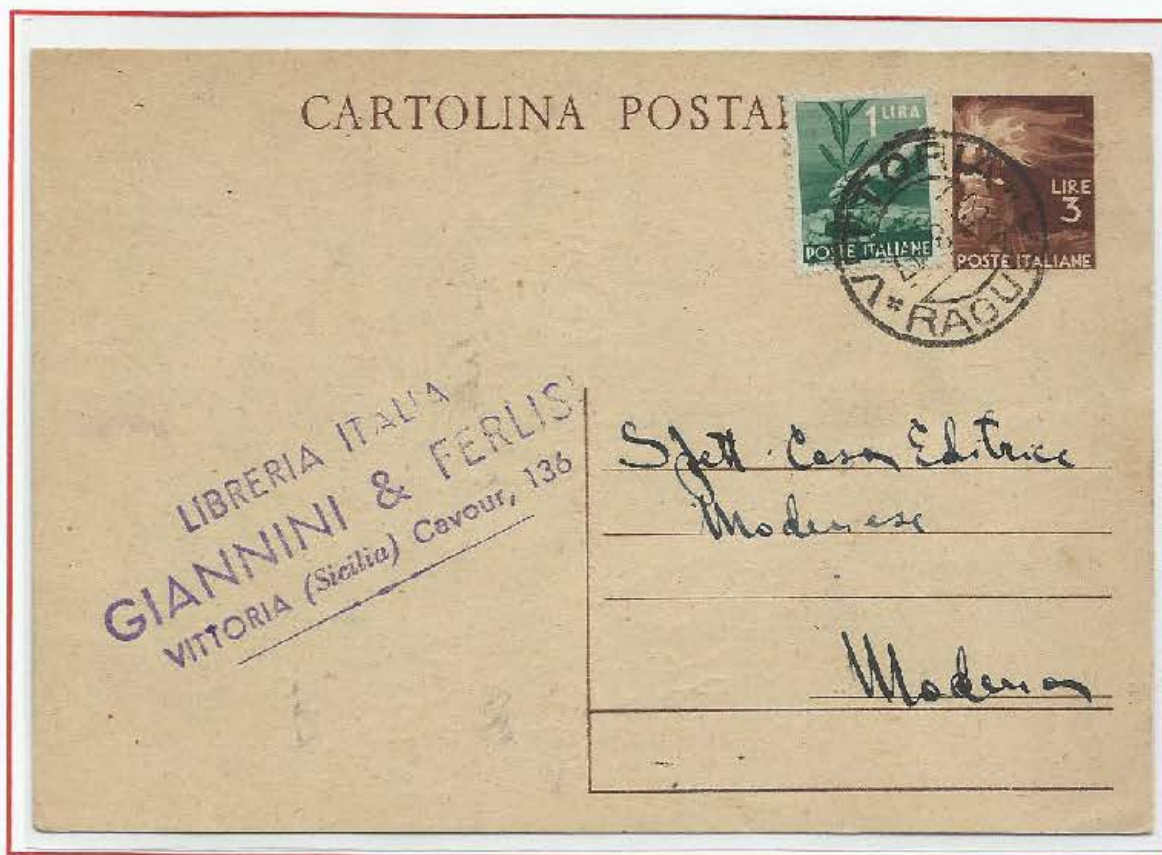 CARTOLINA POSTAL
1 LIRA
POSTE ITALIANE
LIRE
3
POSTE ITALIANE
VITTORIA
* RAGU
LIBRERIA ITALIA
GIANNINI & FERLISI
VITTORIA (Sicilia) Cavour, 136
Spett. Casa Editrice
Modenese
Modena